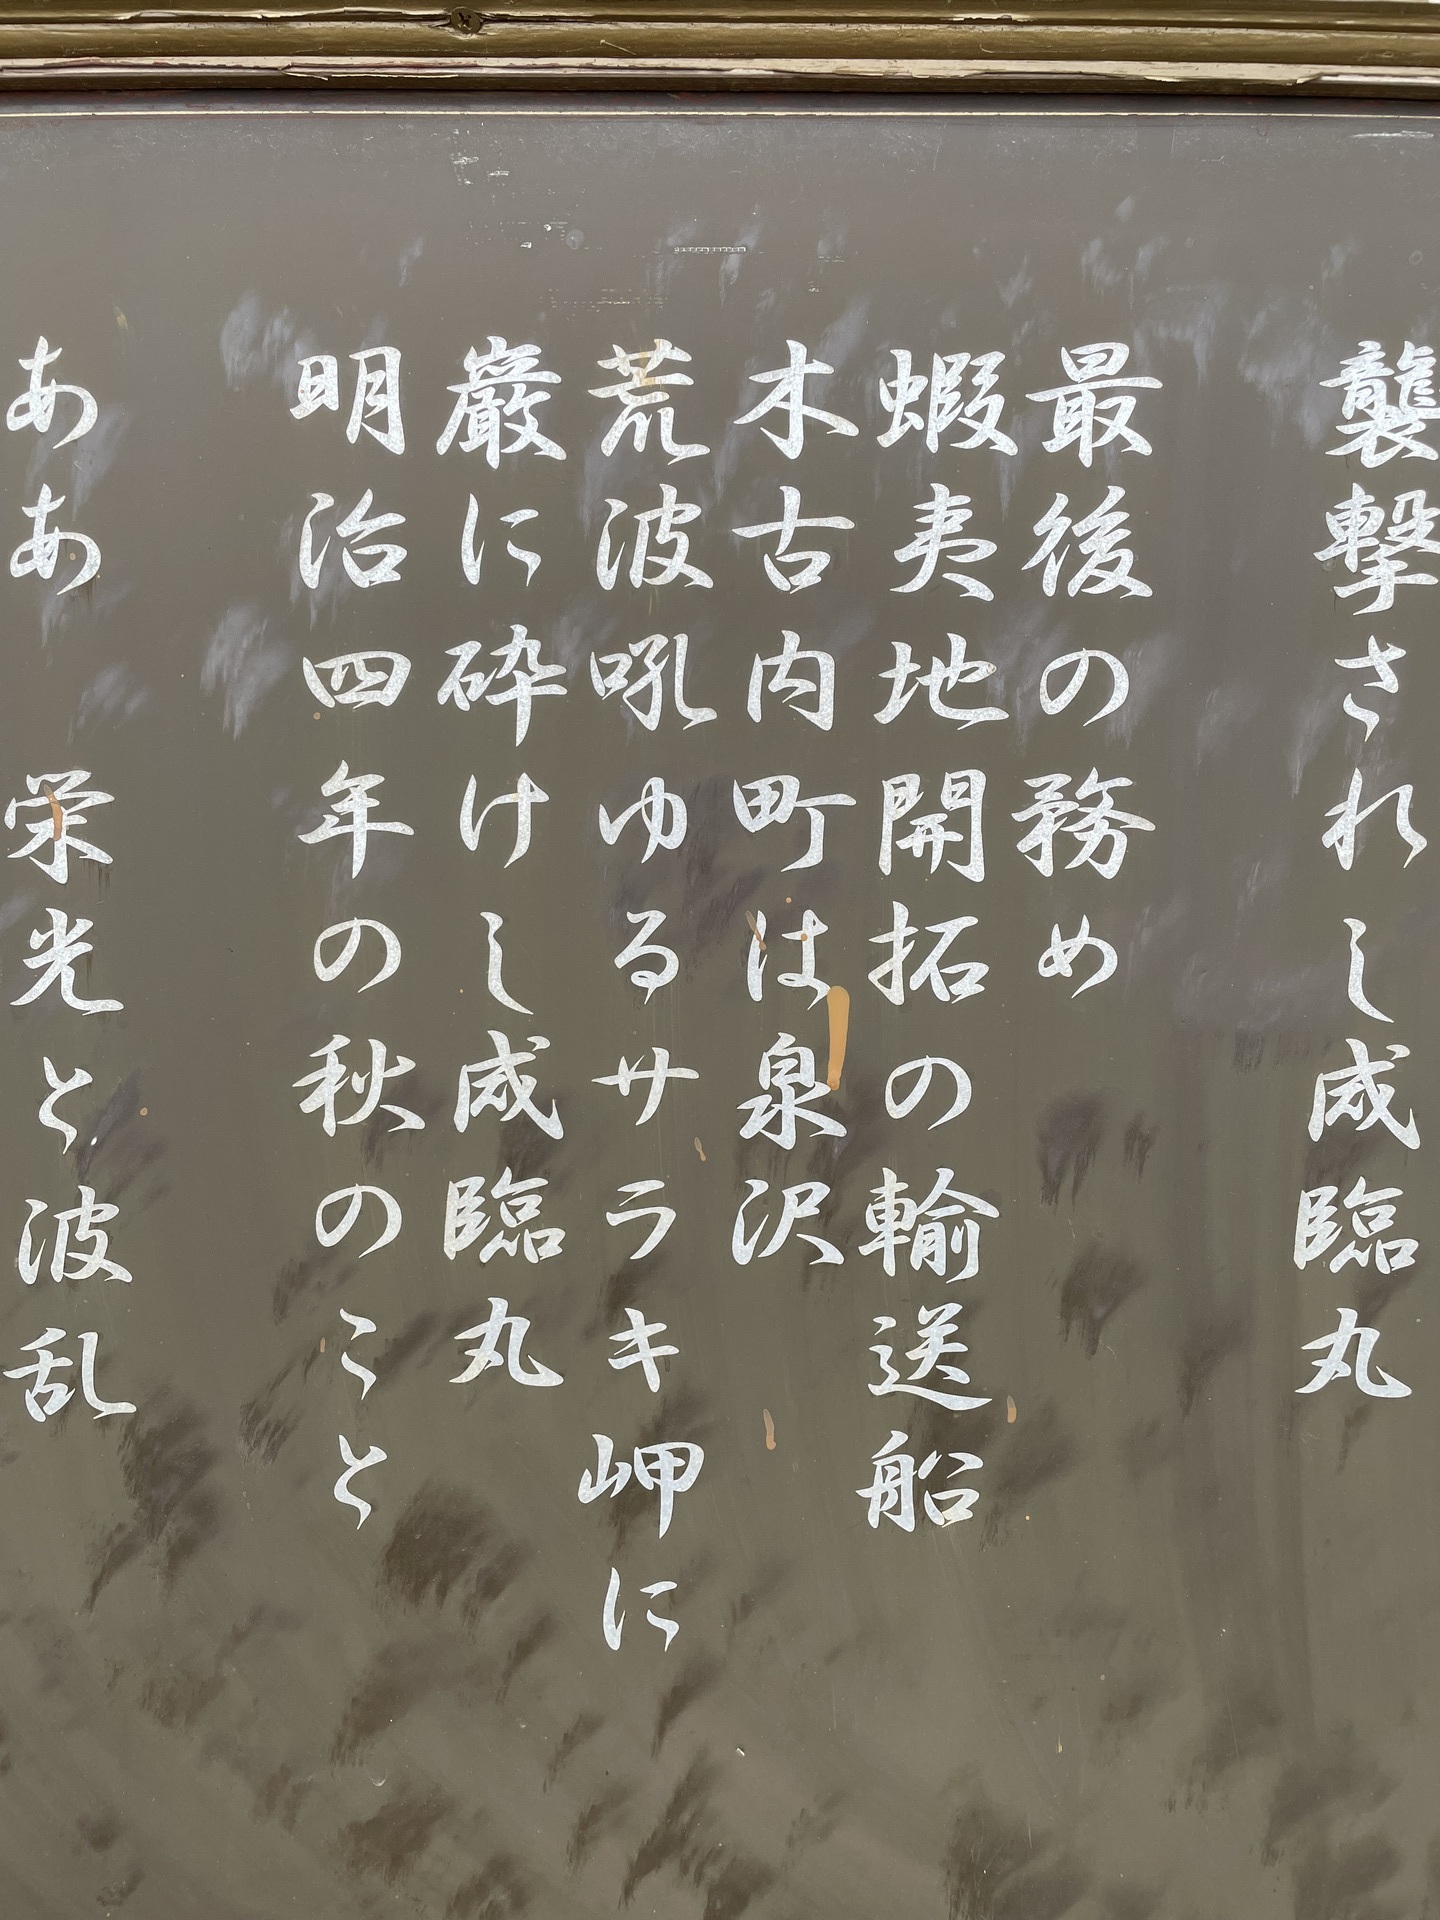 襲撃されし咸臨丸
最後の務め
蝦夷地開拓の輸送船
木古内町は泉沢
荒波吼ゆるサラキ岬に
巌に砕けし咸臨丸
明治四年の秋のこと
ああ　栄光と波乱